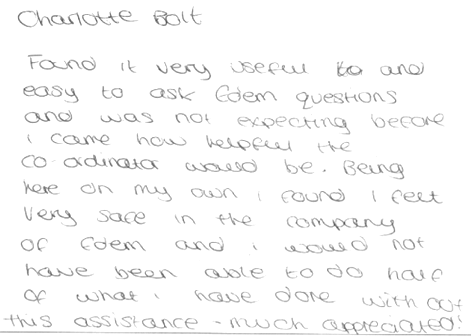 Charlotte Bolt
Found it very useful to and
easy to ask Edem questions
and was not expecting before
i came how helpful the
co-ordinator would be. Being
here on my own i found i felt
very safe in the company
of Edem and i would not
have been able to do half
of what i have done without
this assistance - much appreciated!